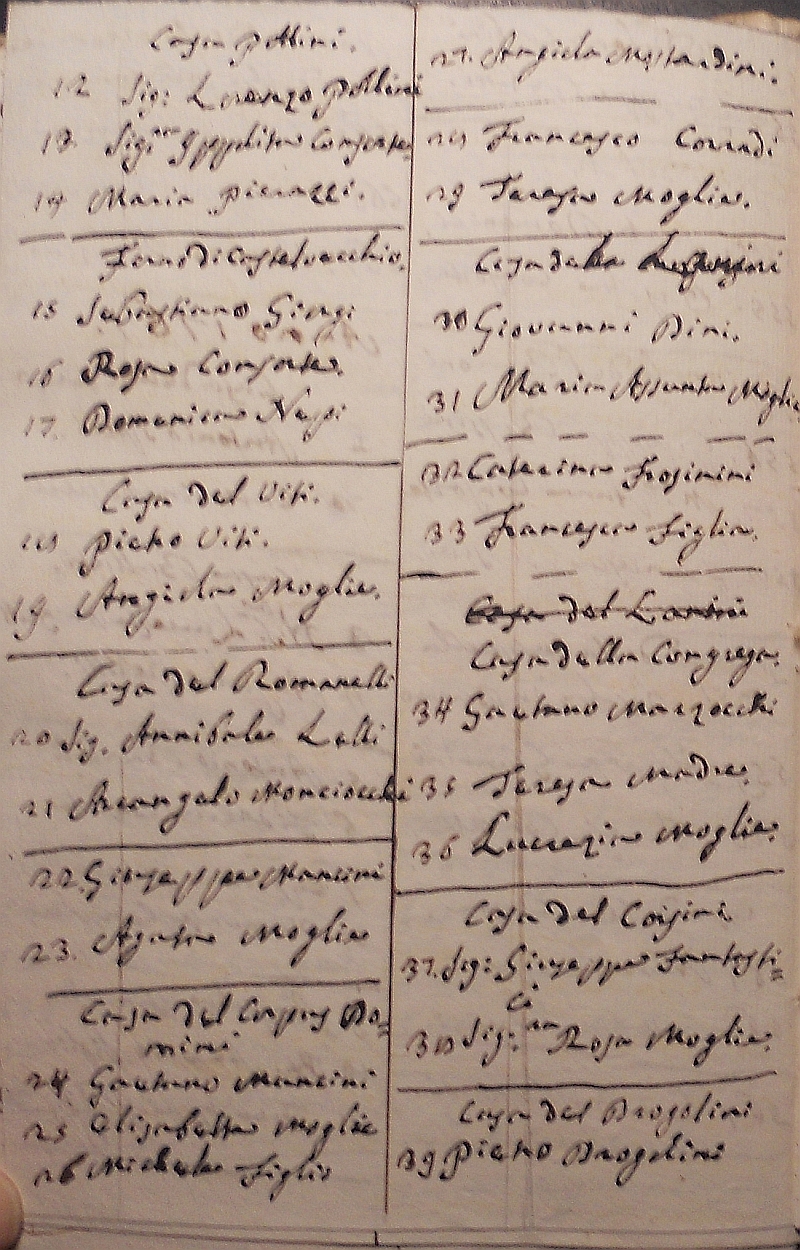 Casa Pollini.
12 Sig: Lorenzo Pollini
13 Sig.ra Ippolita Consorte
14 Maria Pierazzi.
Forno di Castelvecchio.
15 Sebastiano Giorgi
16 Rosa Consorte.
17. Domenica
Casa del Viti.
18 Pietro Viti.
19 Angiola Moglie.
Casa del Romanelli
20 Sig. Annibale Lelli
21 Arcangelo Monciocchi
22. Giuseppe Mancini
23. Agata Moglie
Casa del Corpus Do=
mini
24 Gaetano Mancini
25 Elisabetta Moglie
26 Michele Figlio
27. Angiola Mostardini.
28 Francesco Corradi
29 Teresa Moglie.
Casa della
30 Giovanni Dini.
31 Maria Assunta Moglie
32 Caterina Frosinini
33 Francesca Figlia.
Casa del Landi
Casa della Congrega.
34 Gaetano Marzocchi
35 Teresa Madre.
36 Lucrezia Moglie.
Casa del Corsini.
37. Sig: Giuseppe Fantasti=
ci
38 Sig:ra Rosa Moglie.
Casa del Brogolini
39 Pietro Brogolini